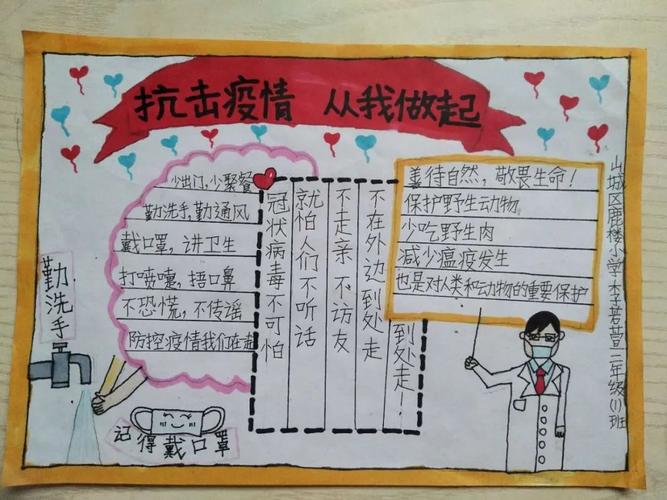 抗击疫情 从我做起
少出门,少聚餐
勤洗手,勤通风
戴口罩,讲卫生
打喷嚏,捂口鼻
不恐慌,不传谣
防控疫情我们在
冠状病毒不可怕
就怕人们不听话
不走亲不访友
不在外边到处走
到处走!
善待自然,敬畏生命!
保护野生动物
少吃野生肉
减少瘟疫发生
也是对人类和动物的重要保护
勤洗手
记得戴口罩
山城区鹿楼小学李若萱二年级(1)班